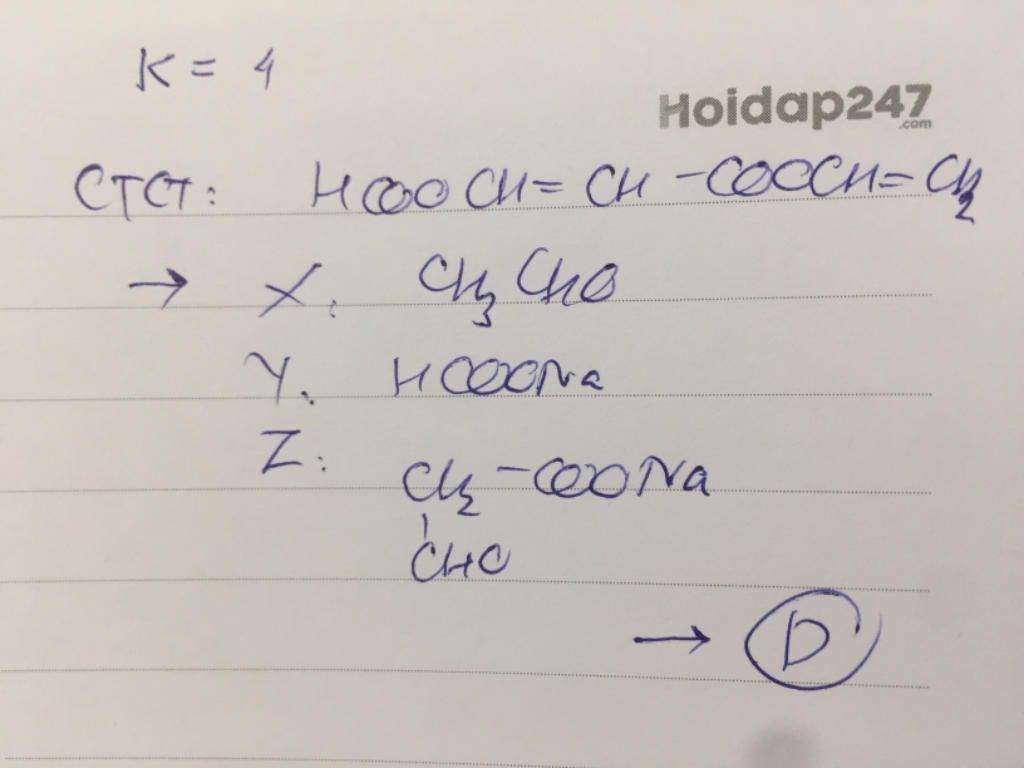 K = 4
Hoidap247
.com
CTCT: HCOOCH=CH-COOCH=CH2
→ X: CH3CHO
Y: HCOONa
Z: CH2-COONa
CHO
→ D